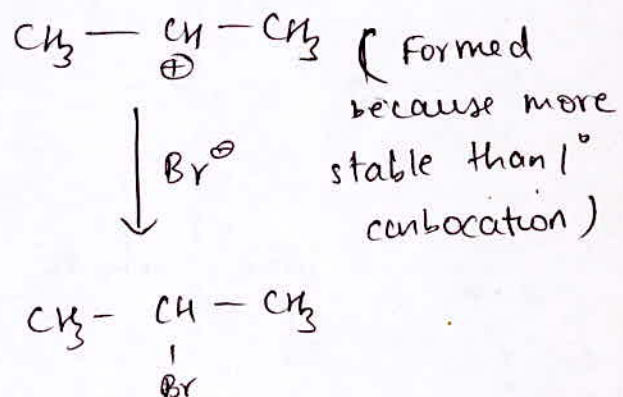 CH₃ — CH — CH₃ ( Formed
⊕
because more
stable than 1°
Br⊖
canbocation )
CH₃ - CH - CH₃
Br